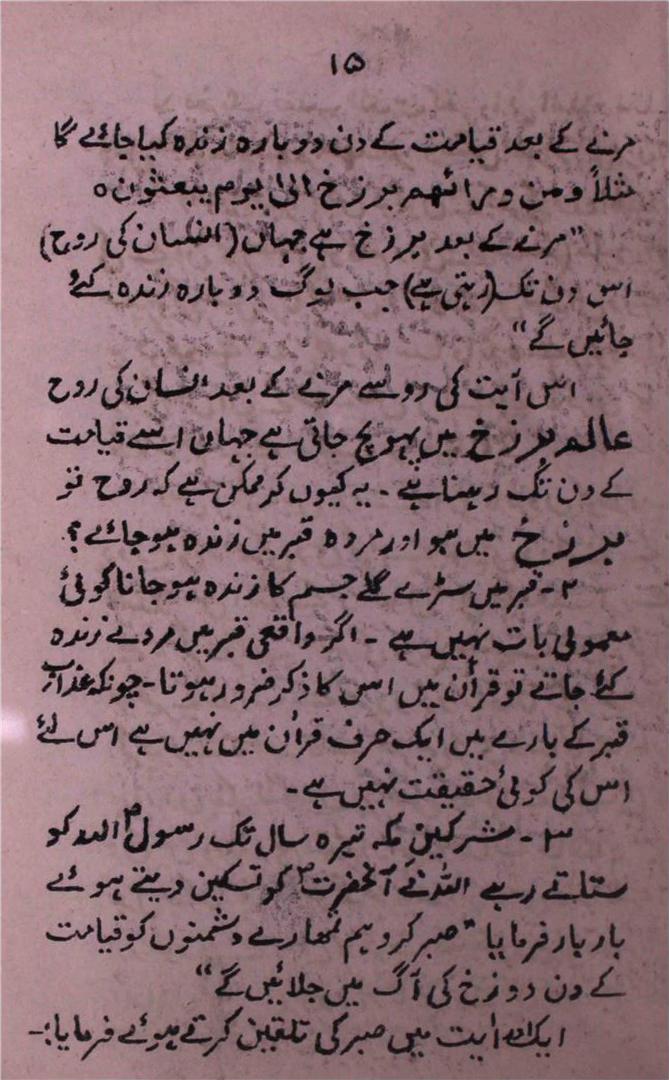 ۱۵
مرنے کے بعد قیامت کے دن دوبارہ زندہ کیا جائے گا
مثلاً ومن ورائھم برزخ الیٰ یوم یبعثون ہ
"مرنے کے بعد برزخ ہے جہاں (انسان کی روح)
اس دن تک (رہتی ہے) جب لوگ دوبارہ زندہ کئے
جائیں گے"
اس آیت کی رو سے مرنے کے بعد انسان کی روح
عالم برزخ میں پہو نچ جاتی ہے جہاں اسے قیامت
کے دن تک رہنا ہے ۔ یہ کیوں کر ممکن ہے کہ روح تو
برزخ میں ہو اور مردہ قبر میں زندہ ہو جائے؟
۲۔ قبر میں سڑے گلے جسم کا زندہ ہو جانا کوئی
معمولی بات نہیں ہے ۔ اگر واقعی قبر میں مردے زندہ
کئے جاتے تو قرآن میں اس کا ذکر ضرور ہوتا۔ چونکہ عذاب
قبر کے بارے میں ایک حرف قرآن میں نہیں ہے اس لئے
اس کی کوئی حقیقت نہیں ہے ۔
۳ ۔ مشرکین مکہ تیرہ سال تک رسولؐ اللہ کو
ستاتے رہے اللہ نے آنحضرتؐ کو تسکین دیتے ہوئے
بار بار فرمایا "صبر کرو ہم تمھارے دشمنوں کو قیامت
کے دن دوزخ کی آگ میں جلائیں گے"
ایک آیت میں صبر کی تلقین کرتے ہوئے فرمایا:۔